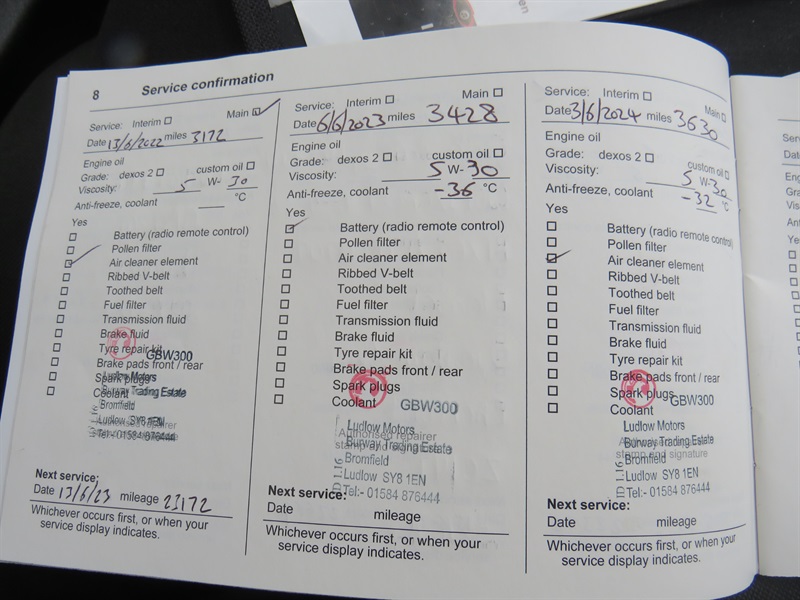 8 Service confirmation
Service: Interim Main
Date 13/6/2022 miles 3172
Engine oil
Grade: dexos 2 custom oil
Viscosity: 5 W- 30
Anti-freeze, coolant °C
Yes
Battery (radio remote control)
Pollen filter
Air cleaner element
Ribbed V-belt
Toothed belt
Fuel filter
Transmission fluid
Brake fluid
Tyre repair kit
GBW300
Brake pads front / rear
Spark plugs
Ludlow Motors
Coolant
Burway Trading Estate
Bromfield
Ludlow SY8 1EN
Tel:- 01584 876444
Next service:
Date 13/6/23 mileage 23172
Whichever occurs first, or when your
service display indicates.
Service: Interim Main
Date 6/6/2023 miles 3428
Engine oil
Grade: dexos 2 custom oil
Viscosity: 5 W-30
Anti-freeze, coolant -36 °C
Yes
Battery (radio remote control)
Pollen filter
Air cleaner element
Ribbed V-belt
Toothed belt
Fuel filter
Transmission fluid
Brake fluid
Tyre repair kit
Brake pads front / rear
Spark plugs
Coolant GBW300
Ludlow Motors
Authorised repairer
Burway Trading Estate
stamp and signature
Bromfield
Ludlow SY8 1EN
Tel:- 01584 876444
Next service:
Date mileage
Whichever occurs first, or when your
service display indicates.
Service: Interim Main
Date 3/6/2024 miles 3630
Engine oil
Grade: dexos 2 custom oil
Viscosity: 5 W-30
Anti-freeze, coolant -32 °C
Yes
Battery (radio remote control)
Pollen filter
Air cleaner element
Ribbed V-belt
Toothed belt
Fuel filter
Transmission fluid
Brake fluid
Tyre repair kit
Brake pads front / rear
Spark plugs
GBW300
Coolant
Ludlow Motors
Burway Trading Estate
stamp and signature
Bromfield
Ludlow SY8 1EN
Tel:- 01584 876444
Next service:
Date mileage
Whichever occurs first, or when your
service display indicates.